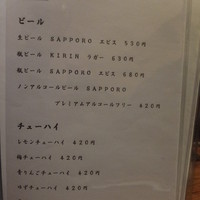 ビール
生ビール SAPPORO エビス 550円
瓶ビール KIRIN ラガー 630円
瓶ビール SAPPORO エビス 680円
ノンアルコールビール SAPPORO
プレミアムアルコールフリー 420円
チューハイ
レモンチューハイ 420円
梅チューハイ 420円
青りんごチューハイ 420円
ユズチューハイ 420円